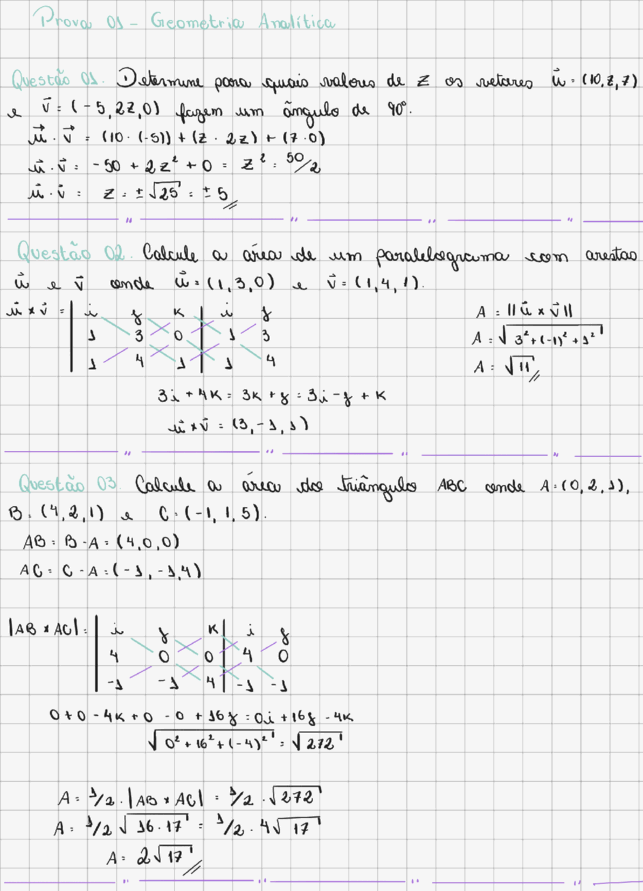 Prova 01 - Geometria Analítica
Questão 01. Determine para quais valores de z os vetores u⃗ = (10, z, 7)
e v⃗ = (-5, 2z, 0) fazem um ângulo de 90°.
u⃗ · v⃗ = (10 · (-5)) + (z · 2z) + (7 · 0)
u⃗ · v⃗ = -50 + 2z² + 0 = z² = 50/2
u⃗ · v⃗ = z = ±√25 = ± 5
Questão 02. Calcule a área de um paralelograma com arestas
u⃗ e v⃗ onde u⃗ = (1, 3, 0) e v⃗ = (1, 4, 1).
u⃗ x v⃗ = | i j k | i j
1 3 0 1 3
1 4 1 | 1 4
A = ||u⃗ x v⃗||
A = √3² + (-1)² + 1²
A = √11
3i + 4k = 3k + j = 3i - j + k
u⃗ x v⃗ = (3, -1, 1)
Questão 03. Calcule a área do triângulo ABC onde A = (0, 2, 1),
B = (4, 2, 1) e C = (-1, 1, 5).
AB = B - A = (4, 0, 0)
AC = C - A = (-1, -1, 4)
|AB x AC| = | i j k | i j
4 0 0 | 4 0
-1 -1 4 | -1 -1
0 + 0 - 4k + 0 - 0 + 16j = 0i + 16j - 4k
√0² + 16² + (-4)² = √272
A = 1/2 · |AB x AC| = 1/2 · √272
A = 1/2 √16 · 17 = 1/2 · 4√17
A = 2√17